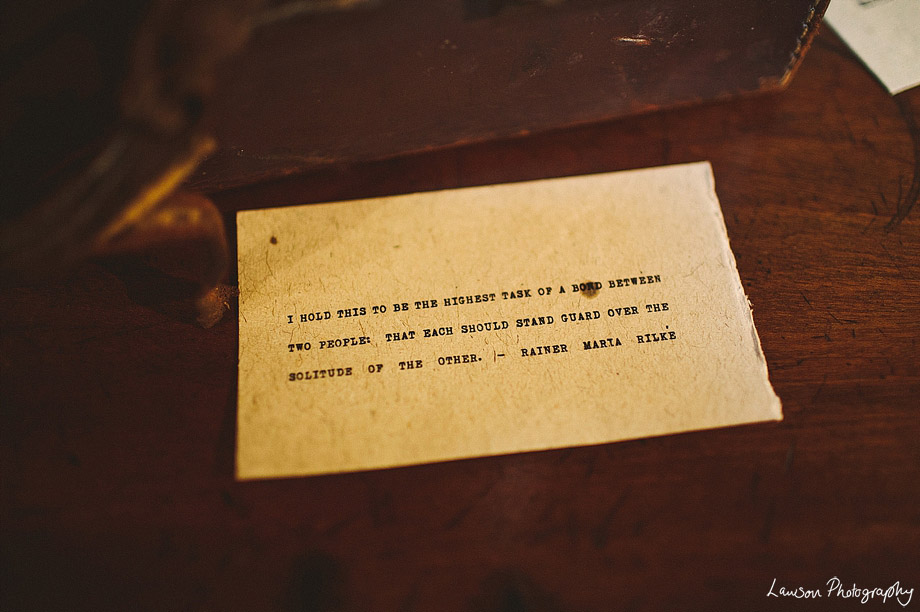 I HOLD THIS TO BE THE HIGHEST TASK OF A BOND BETWEEN
TWO PEOPLE: THAT EACH SHOULD STAND GUARD OVER THE
SOLITUDE OF THE OTHER. |- RAINER MARIA RILKE
Lawson Photography